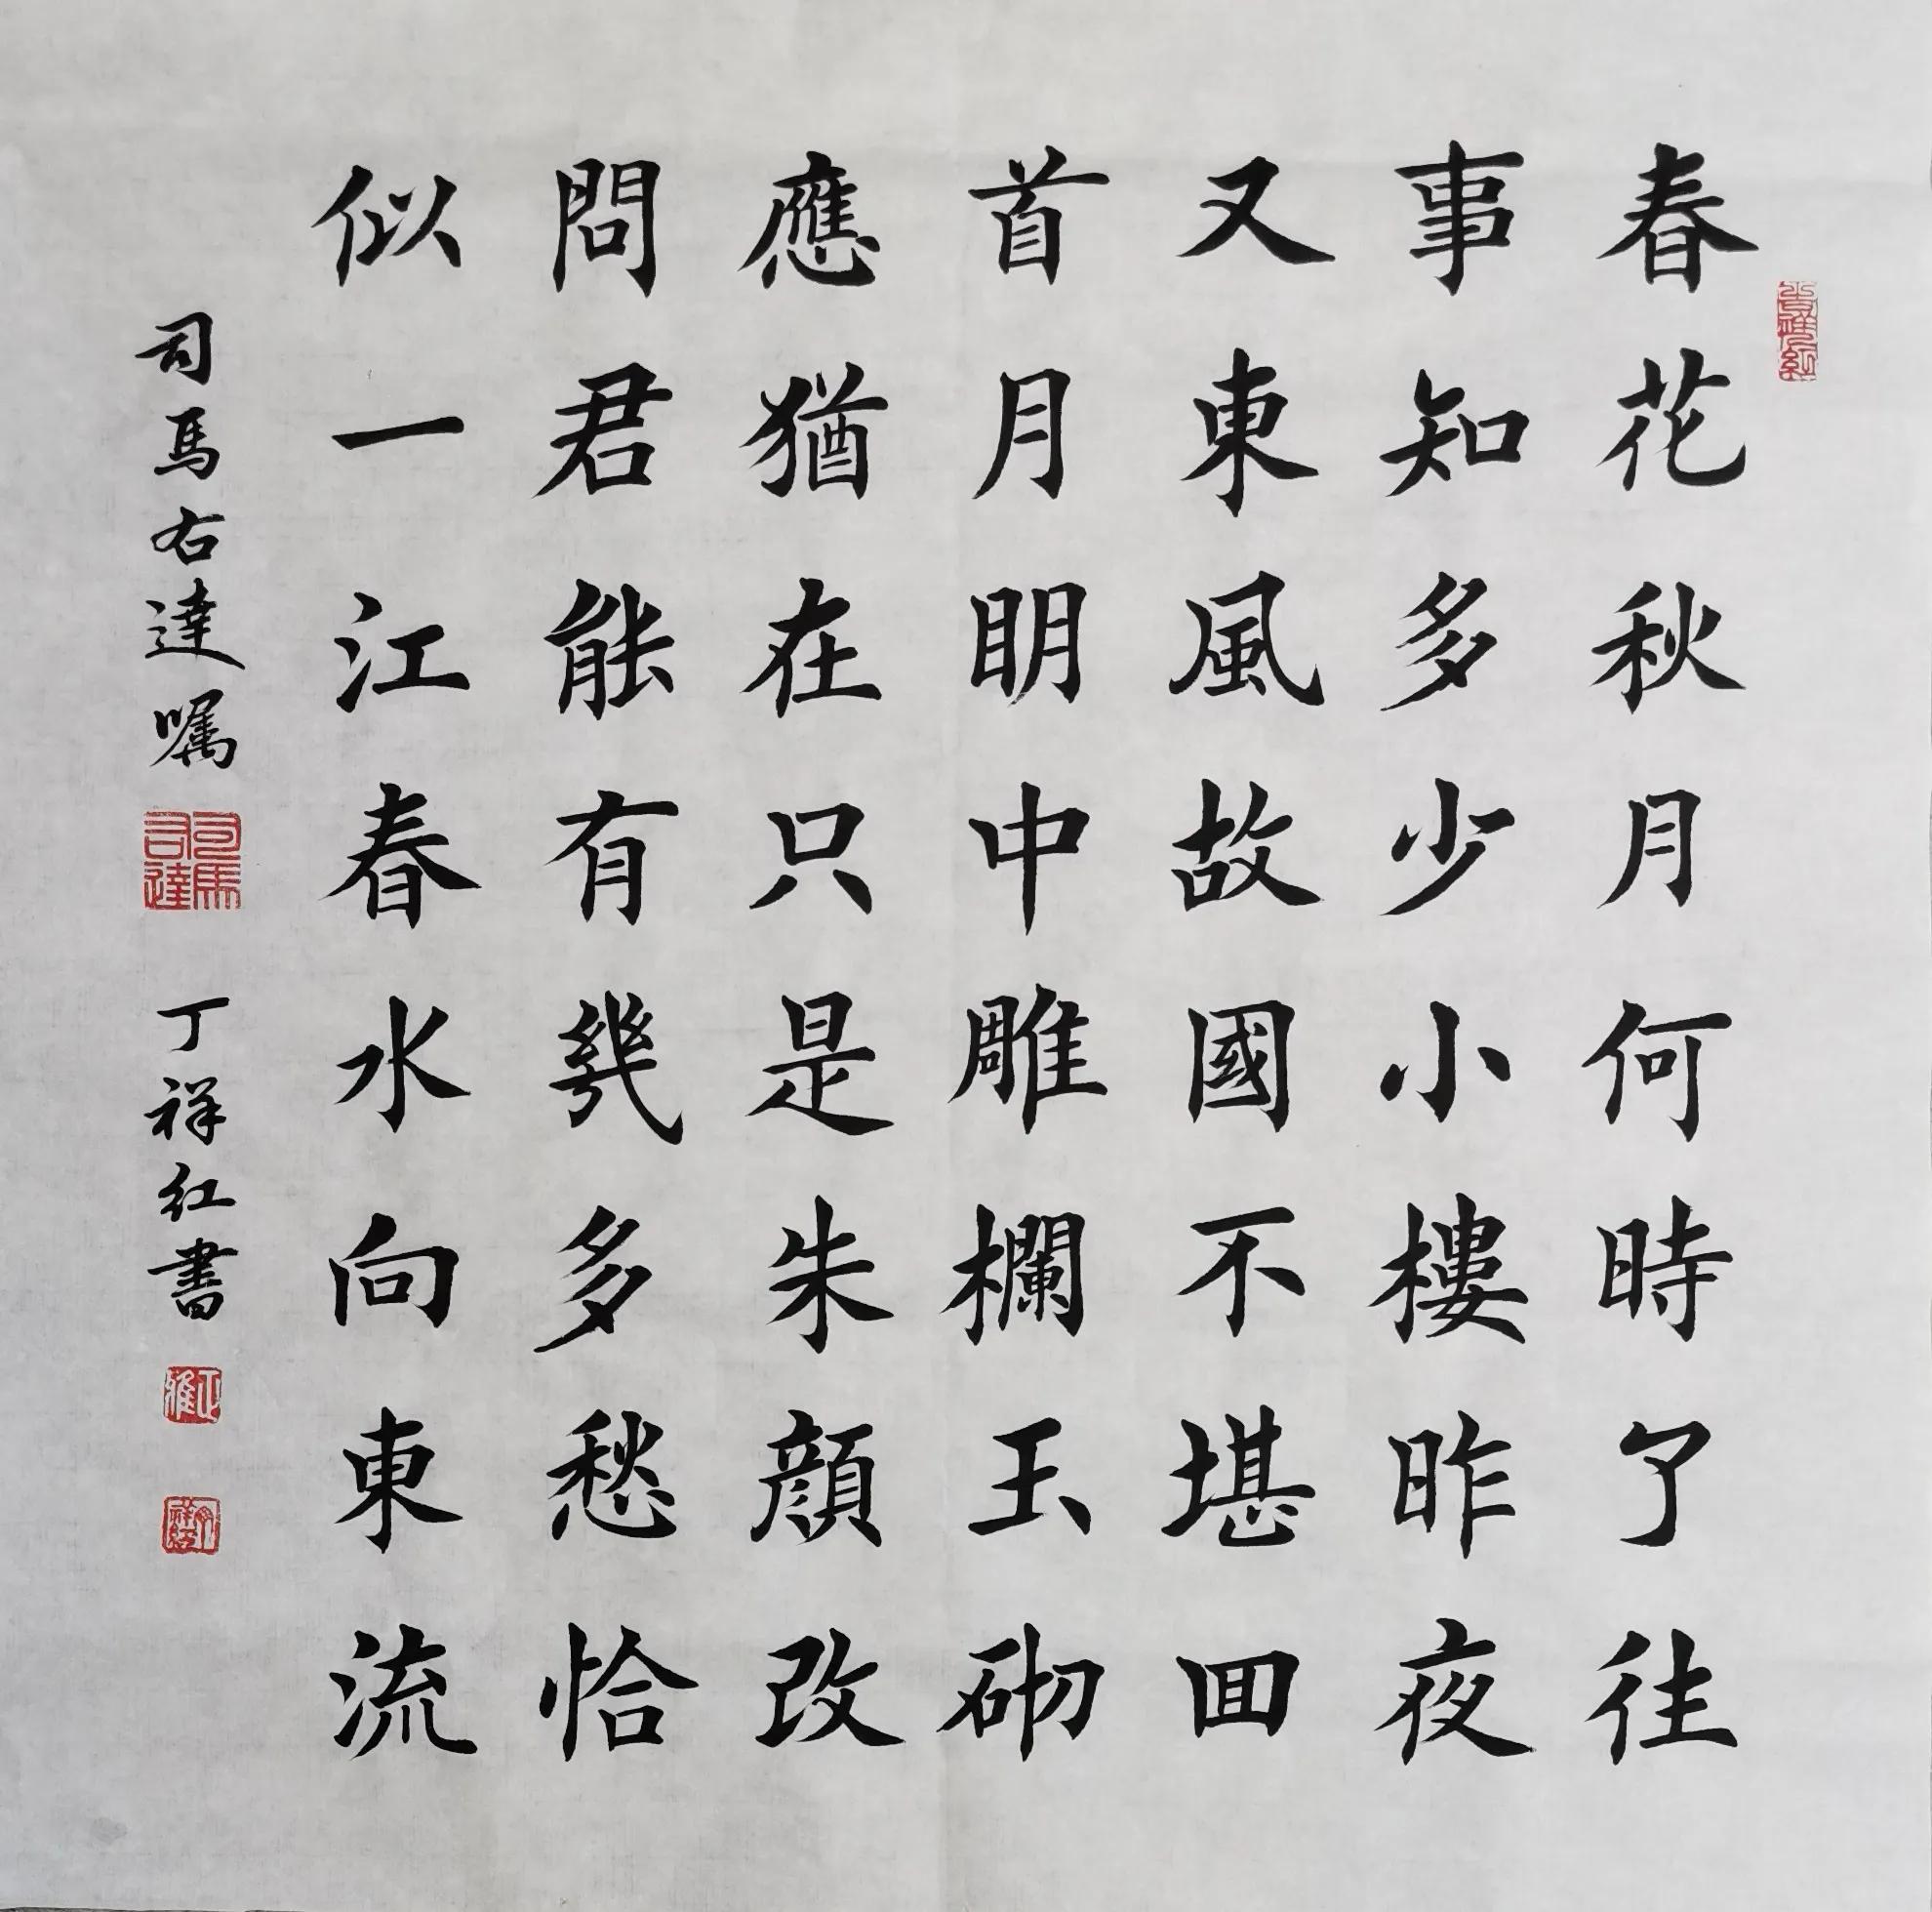 春花秋月何時了往
事知多少小樓昨夜
又東風故國不堪回
首月明中雕欄玉砌
應猶在只是朱顔改
問君能有幾多愁恰
似一江春水向東流
司馬右達嘱
丁祥红書